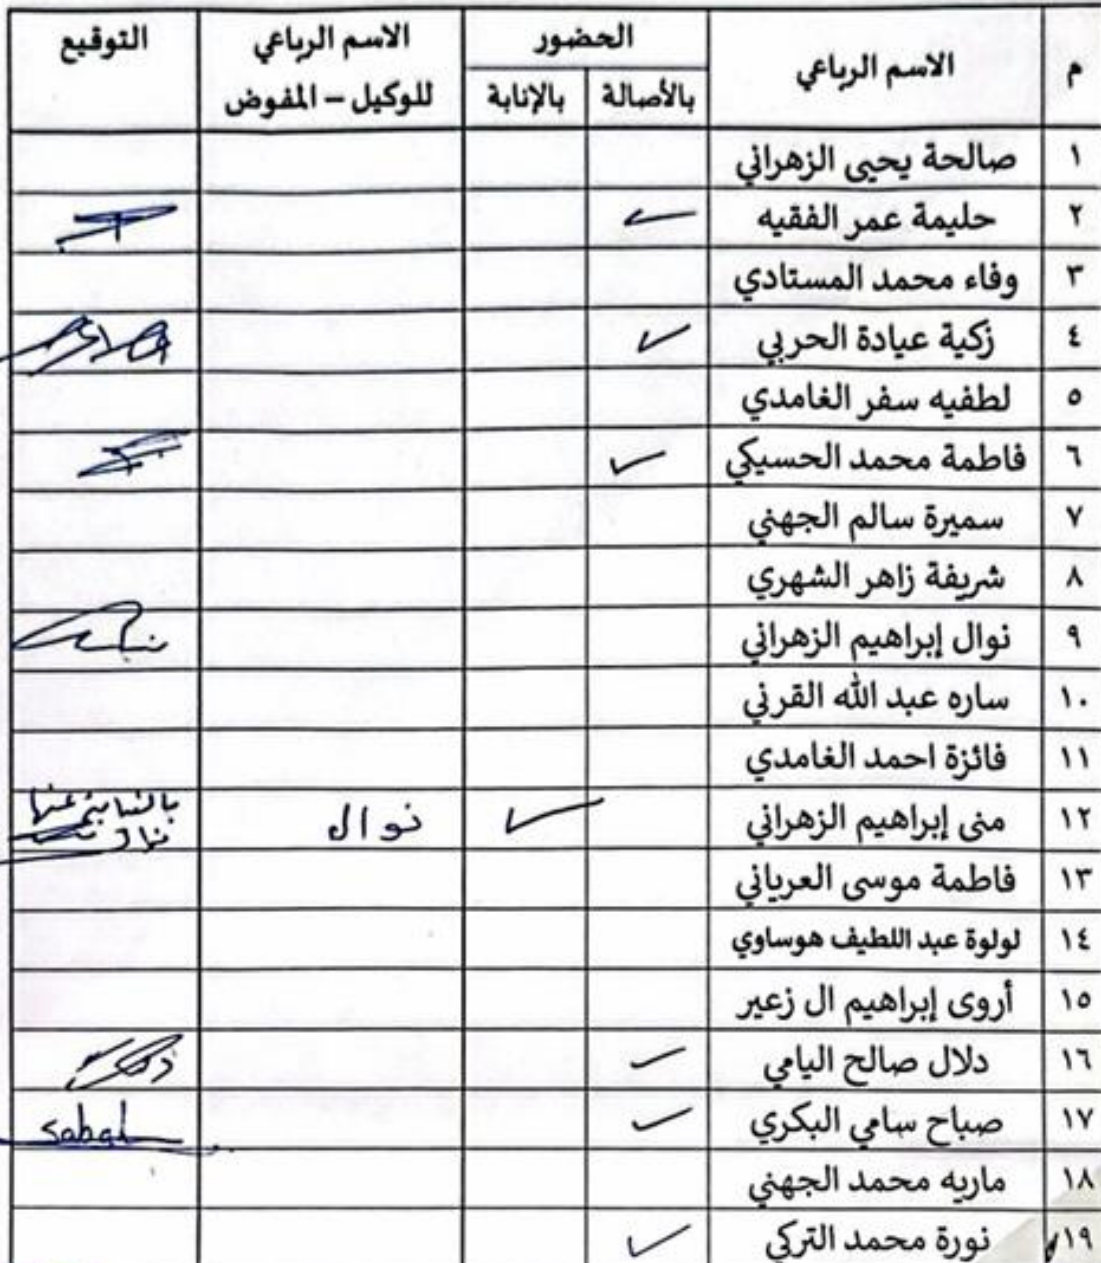 م الاسم الرباعي الحضور الاسم الرباعي للوكيل – المفوض التوقيع
بالأصالة بالإنابة
١ صالحة يحيى الزهراني
٢ حليمة عمر الفقيه ✓
٣ وفاء محمد المستادي
٤ زكية عيادة الحربي ✓
٥ لطفيه سفر الغامدي
٦ فاطمة محمد الحسيكي ✓
٧ سميرة سالم الجهني
٨ شريفة زاهر الشهري
٩ نوال إبراهيم الزهراني
١٠ ساره عبد الله القرني
١١ فائزة احمد الغامدي
١٢ منى إبراهيم الزهراني ✓ نوال
١٣ فاطمة موسى العرياني
١٤ لولوة عبد اللطيف هوساوي
١٥ أروى إبراهيم ال زعير
١٦ دلال صالح اليامي ✓
١٧ صباح سامي البكري ✓ sabah
١٨ ماريه محمد الجهني
١٩ نورة محمد التركي ✓